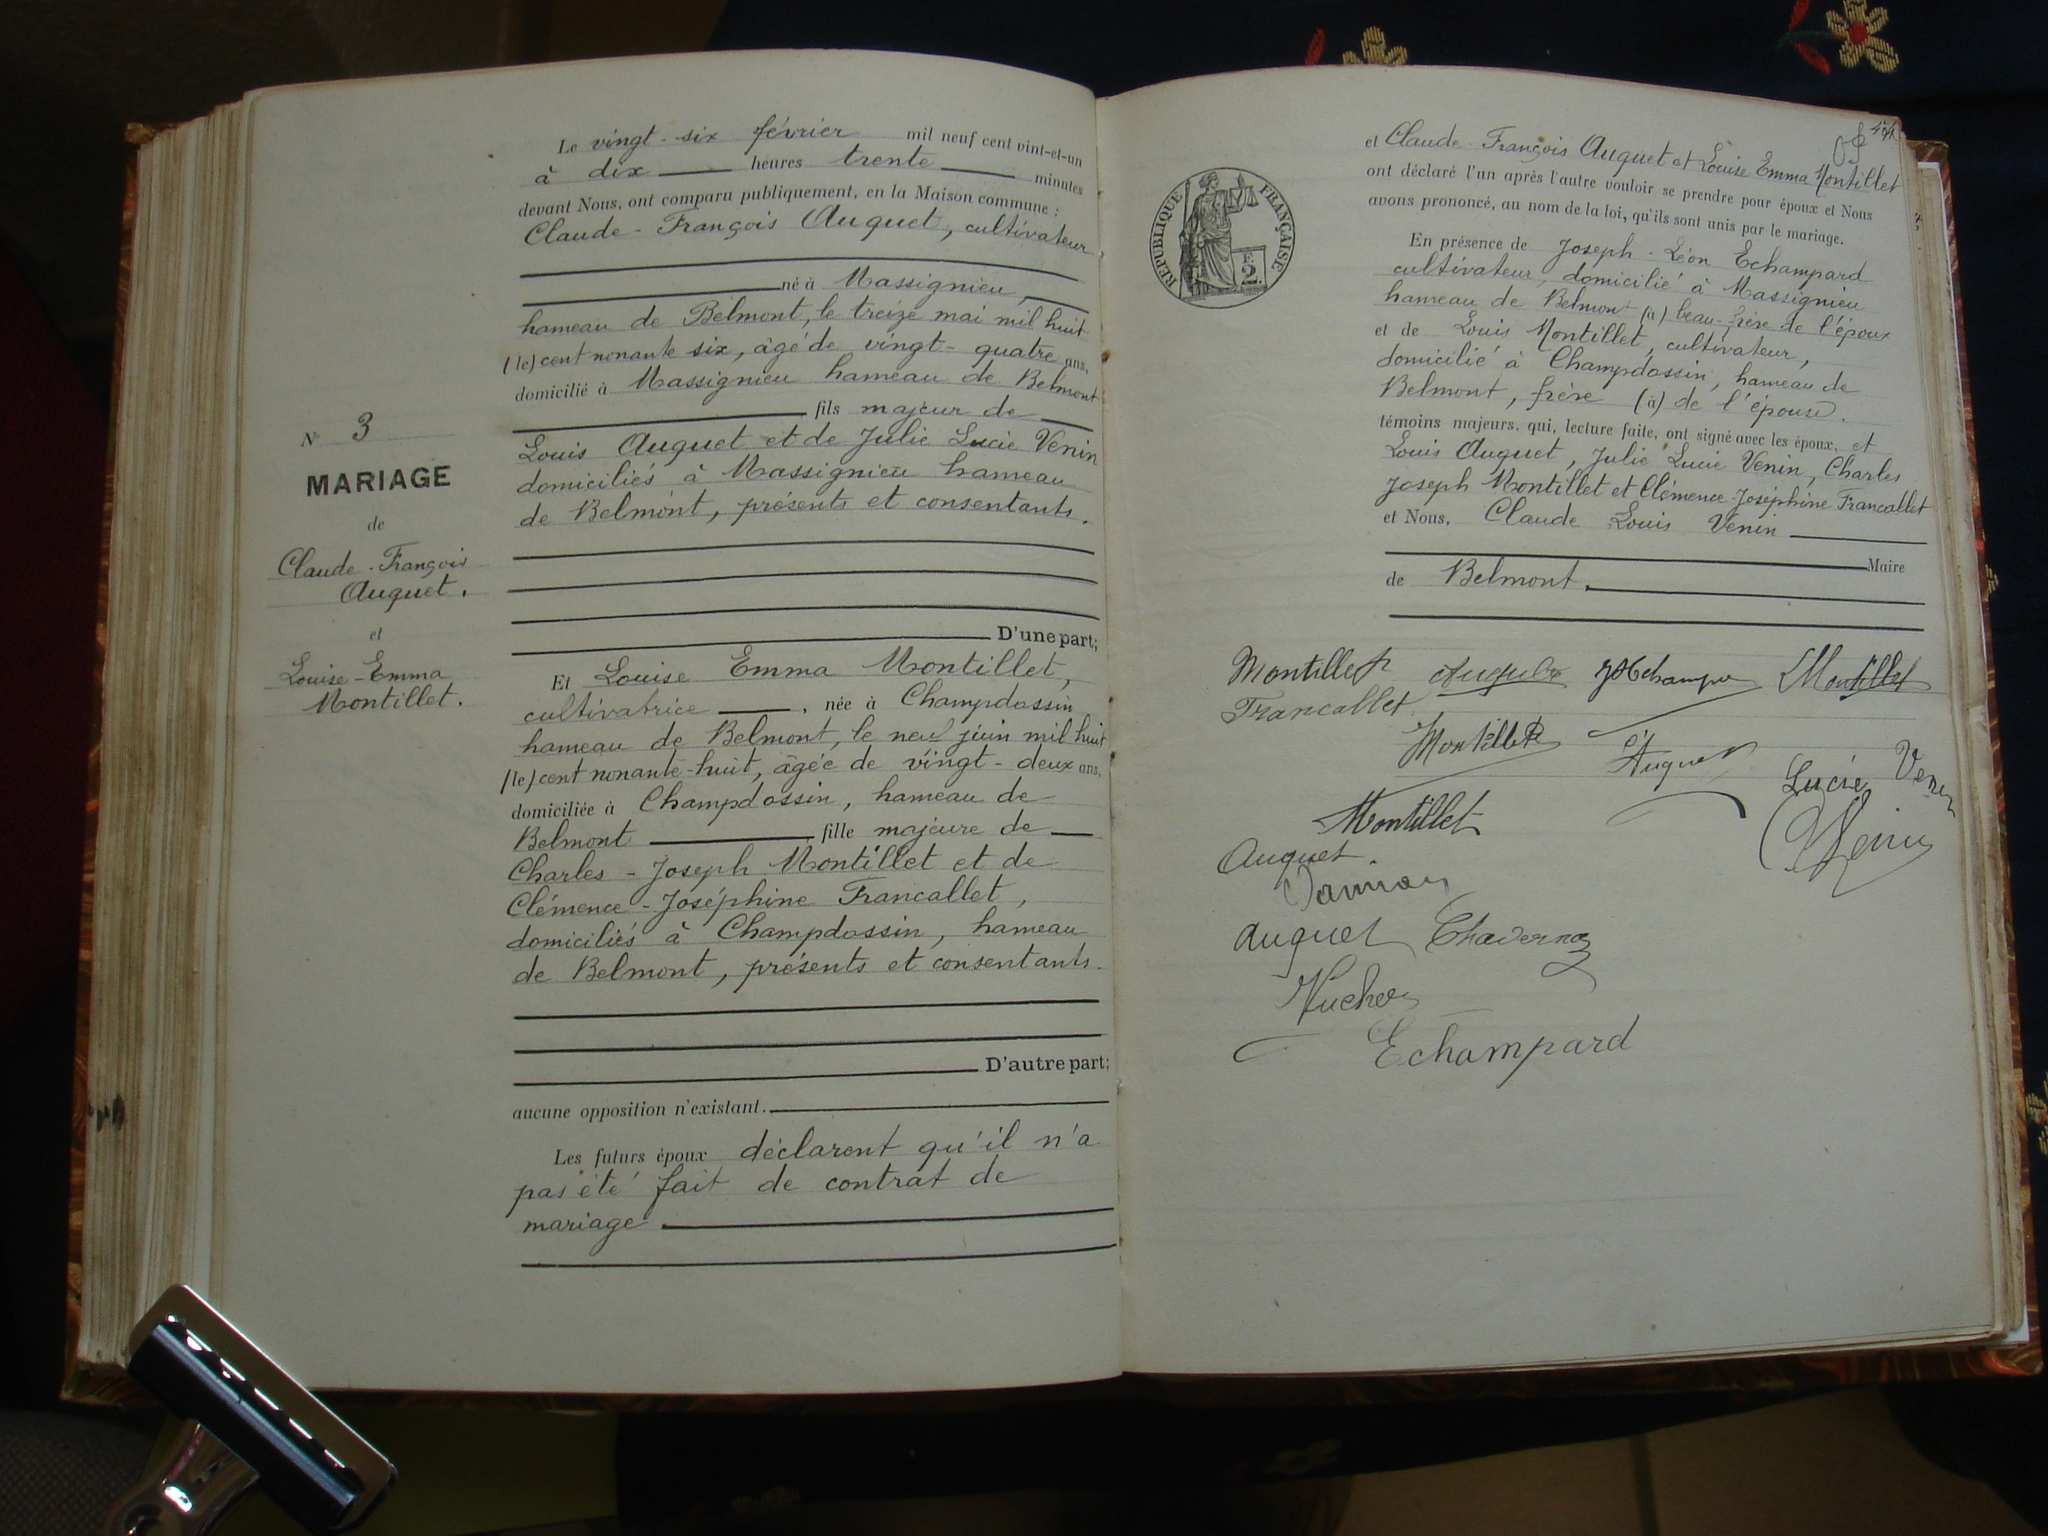 Le vingt-six février mil neuf cent vint-et-un
à dix heures trente minutes
devant Nous, ont comparu publiquement, en la Maison commune :
Claude-François Auguet, cultivateur
né à Massignieu,
hameau de Belmont, le treize mai mil huit
(le) cent nonante six, âgé de vingt-quatre ans,
domicilié à Massignieu hameau de Belmont
fils majeur de
Louis Auguet et de Julie Lucie Venin
domiciliés à Massignieu hameau
de Belmont, présents et consentants.
D'une part;
N° 3
MARIAGE
de
Claude-François
Auguet.
et
Louise-Emma
Montillet.
Et Louise Emma Montillet,
cultivatrice, née à Champdossin
hameau de Belmont, le neuf juin mil huit
(le) cent nonante-huit, âgée de vingt-deux ans,
domiciliée à Champdossin, hameau de
Belmont fille majeure de
Charles-Joseph Montillet et de
Clémence-Joséphine Francallet,
domiciliés à Champdossin, hameau
de Belmont, présents et consentants.
D'autre part;
aucune opposition n'existant.
Les futurs époux déclarent qu'il n'a
pas été fait de contrat de
mariage
REPUBLIQUE FRANÇAISE
2
et Claude-François Auguet et Louise Emma Montillet
ont déclaré l'un après l'autre vouloir se prendre pour époux et Nous
avons prononcé, au nom de la loi, qu'ils sont unis par le mariage.
En présence de Joseph-Léon Echampard
cultivateur, domicilié à Massignieu
hameau de Belmont (à) beau-frère de l'époux
et de Louis Montillet, cultivateur,
domicilié à Champdossin, hameau de
Belmont, frère (à) de l'épouse.
témoins majeurs, qui, lecture faite, ont signé avec les époux, et
Louis Auguet, Julie Lucie Venin, Charles
Joseph Montillet et Clémence-Joséphine Francallet
et Nous, Claude Louis Venin
Maire
de Belmont.
Montillet Auguet Montillet
Francallet
Montillet Auguet
Lucie Venin
Montillet
Auguet
Auguet Chavernoz
Echampard